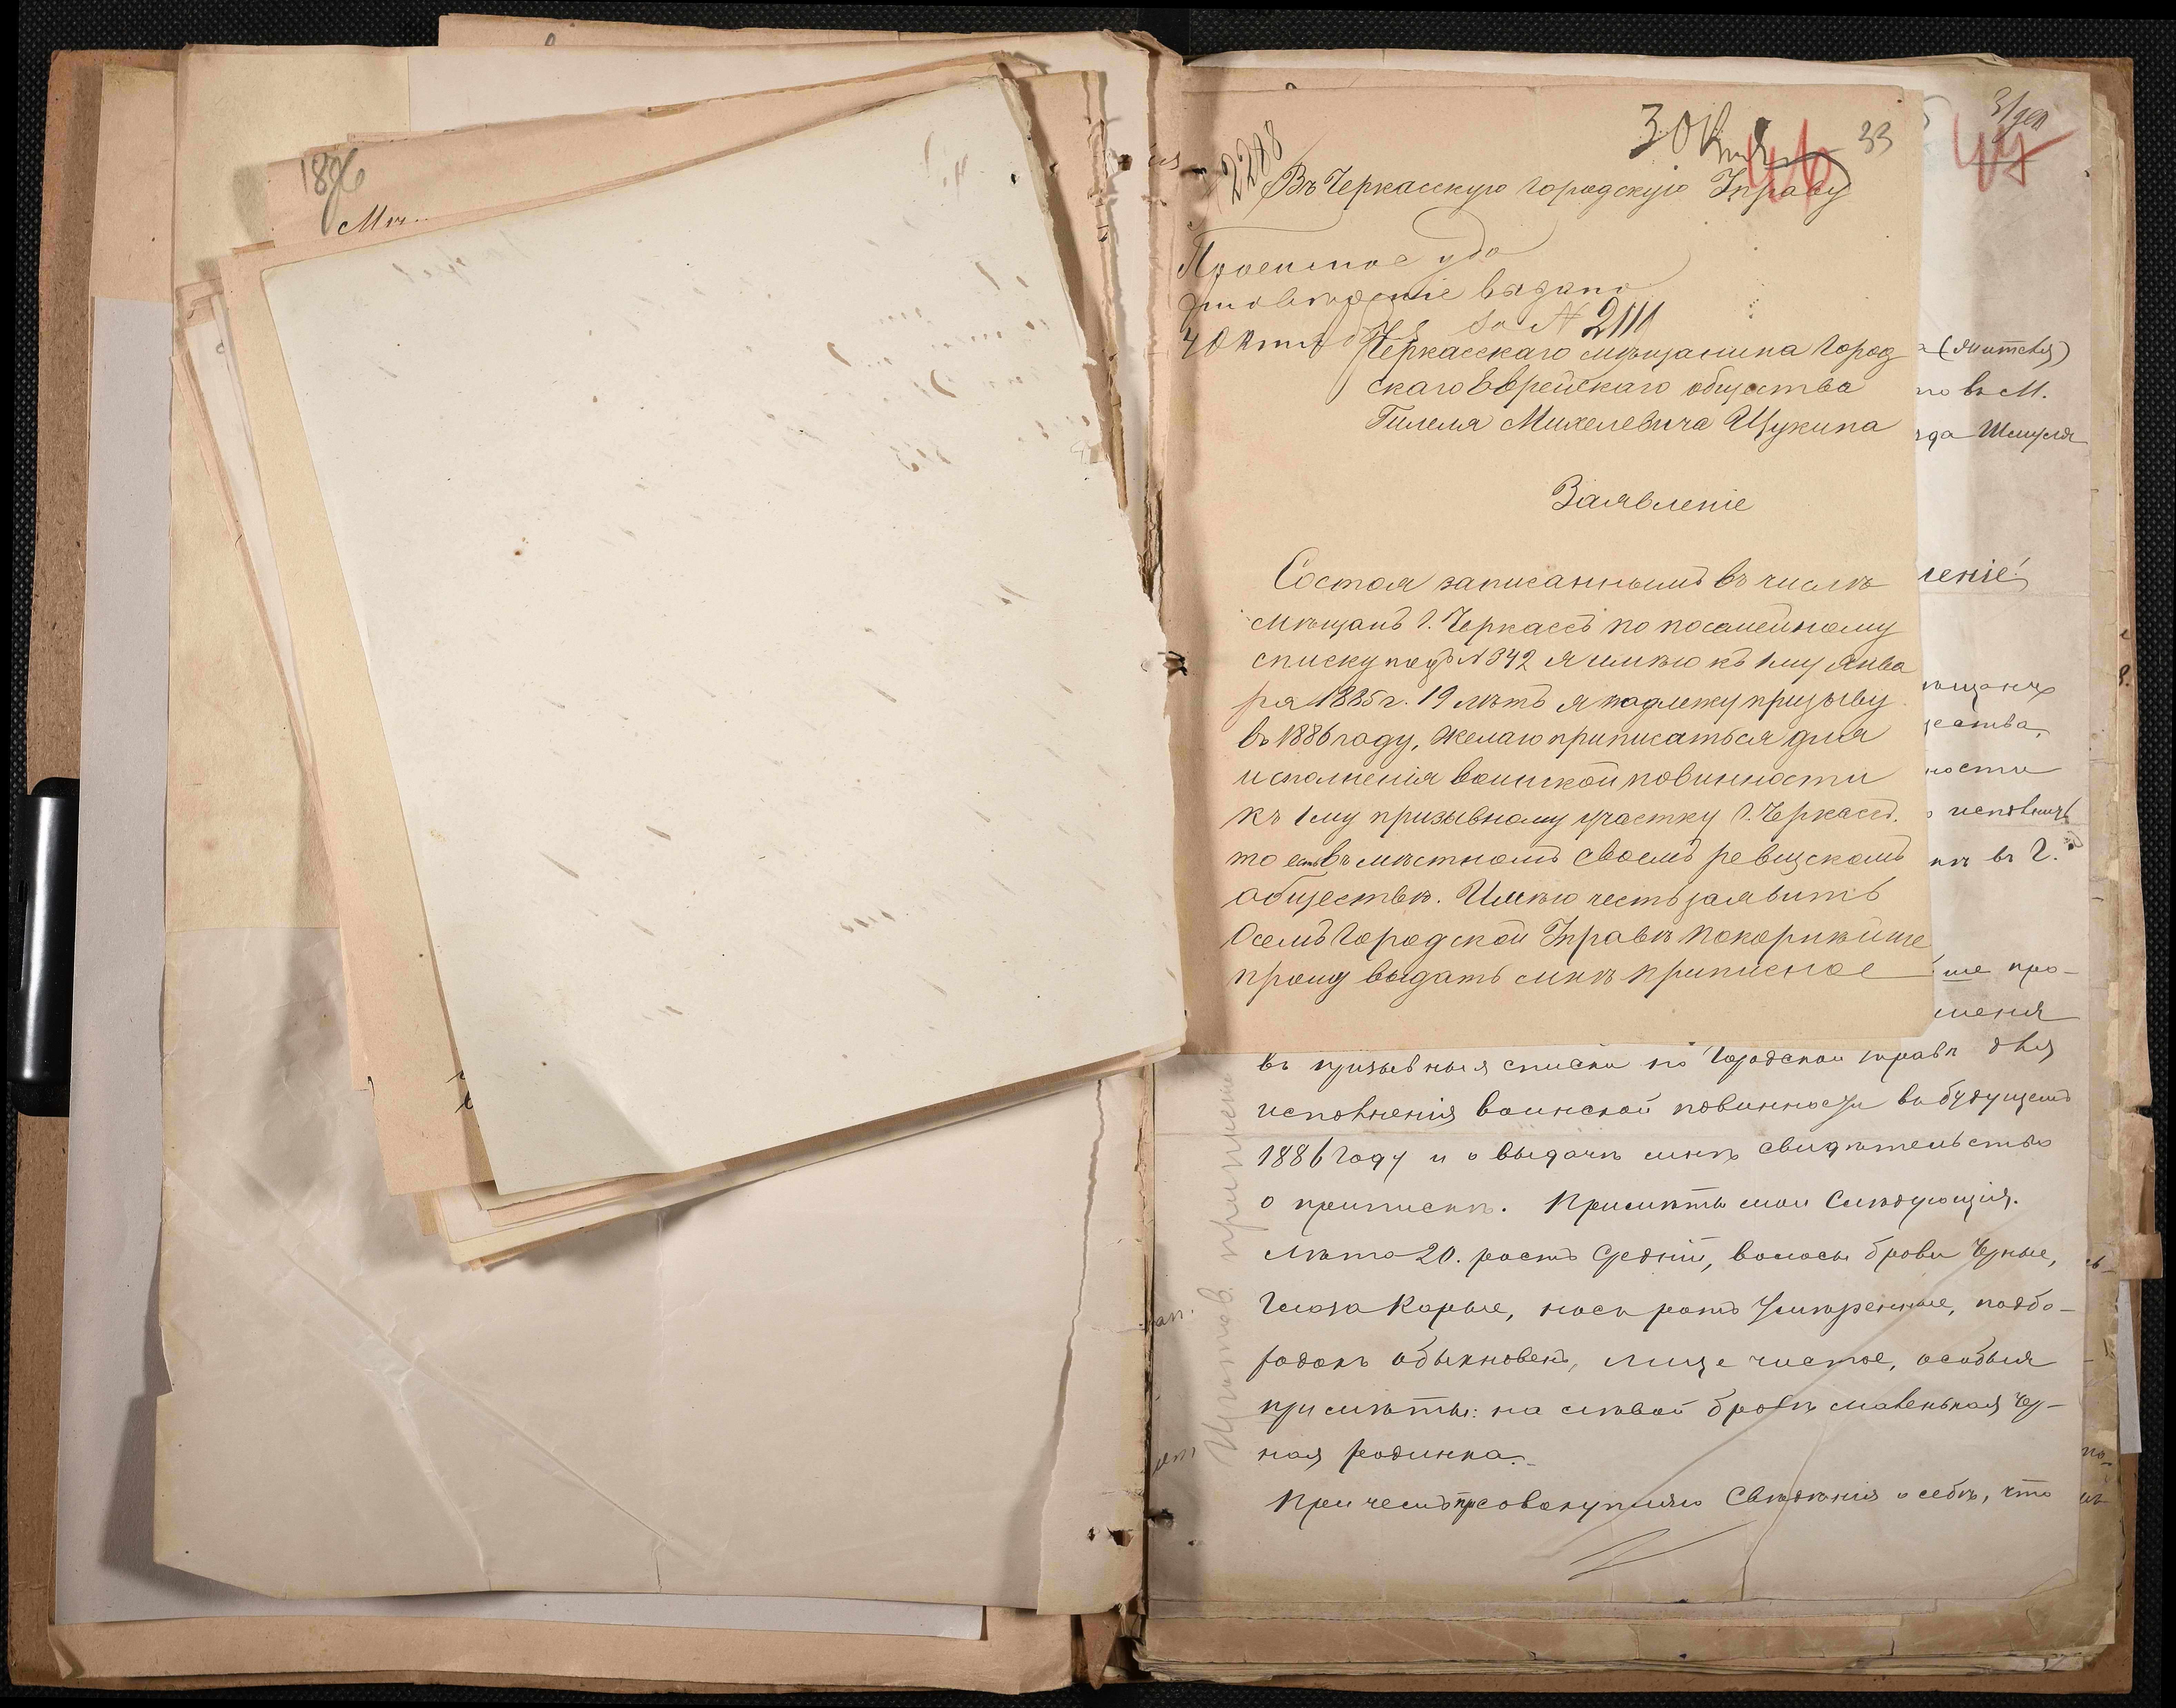 1876
2288
30
46
33
Въ Черкасскую Городскую Управу
Приписное удо
стовѣреніе выдано
4 Октября за № 2111
Черкасскаго мѣщанина Город
скаго Еврейскаго общества
Гилеля Михелевича Щукина
Заявленіе
Состоя записаннымъ въ числѣ
мѣщанъ г. Черкассъ по посемейному
списку подъ № 342 я имѣю къ 1му Янва
ря 1885 г. 19 лѣтъ я подлежу призыву
въ 1886 году, желаю приписаться для
исполненія воинской повинности
къ 1му призывному участку г. Черкассъ.
то есть въ мѣстномъ своемъ ревизскомъ
обществѣ. Имѣю честь заявить
О семъ Городской Управѣ Покорнѣйше
прошу выдать мнѣ приписное
47
но въ М.
Шмуля
леніе
мѣщанъ
ности
исполнить
въ г.
ше про-
меня
въ призывныя списки по Городской управѣ для
исполненія воинской повинности въ будущемъ
1886 году и о выдачѣ мнѣ свидѣтельство
о припискѣ. Примѣты мои Слѣдующія.
Лѣта 20. ростъ Средній, волосы брови Черные,
Глаза Карые, носъ ротъ Умѣренные, подбо-
родокъ обыкновенъ, лице чистое, особыя
примѣты: на лѣвой бровѣ маленькая чер-
ная родинка.
При чемъ присовокупляю Свѣдѣнія о себѣ, что